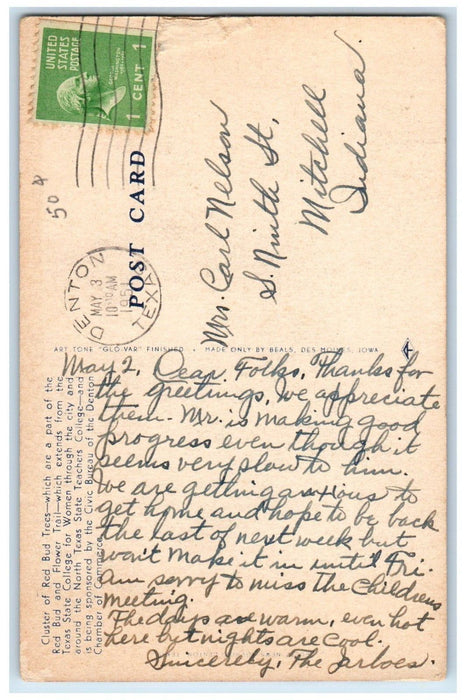 UNITED
STATES
POSTAGE
1 CENT 1
50 4
POST CARD
DENTON
MAY 3
AM
1951
TEXAS
Mrs. Carl Nelson
S. Ninth St.
Mitchell
Indiana
ART TONE "GLO-VAR" FINISHED • MADE ONLY BY BEALS, DES MOINES, IOWA
Cluster of Red Bud Trees—which are a part of the
Red Bud and Flower Trail—which extends from the
Texas State College for Women through the city and
around the North Texas State Teachers College—and
is being sponsored by the Civic Bureau of the Denton
Chamber of Commerce.
May 2, Dear Folks, Thanks for
the greetings, we appreciate
them. Mr. is making good
progress even though it
seems very slow to him.
We are getting anxious to
get home and hope to be back
the last of next week but
won't make it in until Fri.
am sorry to miss the Childrens
meeting.
The days are warm, even hot
here but nights are cool.
Sincerely, The Jerloes.